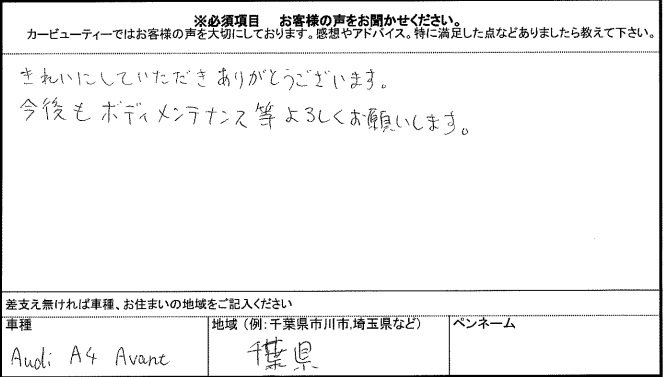 ※必須項目　お客様の声をお聞かせください。
カービューティーではお客様の声を大切にしております。感想やアドバイス。特に満足した点などありましたら教えて下さい。
きれいにしていただきありがとうございます。
今後もボディメンテナンス等よろしくお願いします。
差支え無ければ車種、お住まいの地域をご記入ください
車種　地域（例:千葉県市川市,埼玉県など）　ペンネーム
Audi A4 Avant　千葉県